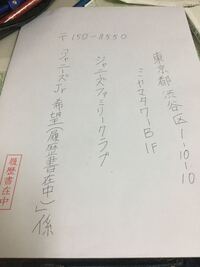 〒150-8550
東京都渋谷区1-10-10
ミヤマスタワーB1F
ジャニーズファミリークラブ
「ジャニーズJr.希望(履歴書在中)」係
履歴書在中